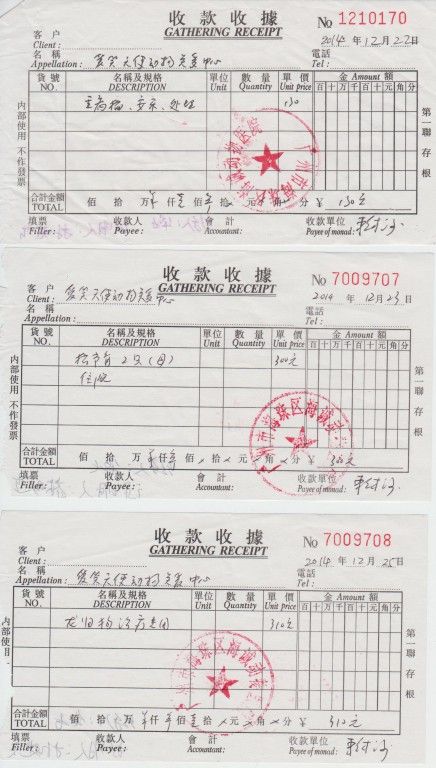 收款收據
GATHERING RECEIPT
No 1210170
客户
Client:
2014 年 12 月 22 日
名稱
Appellation: 愛笑天使动物关爱中心
電話
Tel:
貨號 名稱及規格 單位 數量 單價 金 Amount 額
NO. DESCRIPTION Unit Quantity Unit price 百 十 万 千 百 十 元 角 分
130
内部使用 不作發票
第一聯 存根
合計金額 佰 拾 万 仟 佰 拾 元 角 分 ¥ 130元
TOTAL
填票 收款人 會計 收款單位
Filler: Payee: Accountant: Payee of monad:
收款收據
GATHERING RECEIPT
No 7009707
客户
Client: 愛笑天使动物关爱中心
2014 年 12 月 23 日
名稱
Appellation:
電話
Tel:
貨號 名稱及規格 單位 數量 單價 金 Amount 額
NO. DESCRIPTION Unit Quantity Unit price 百 十 万 千 百 十 元 角 分
2只(母) 300元
住院
内部使用 不作發票
第一聯 存根
合計金額 佰 拾 万 仟 佰 拾 元 角 分 ¥ 300元
TOTAL
填票 收款人 會計 收款單位
Filler: Payee: Accountant: Payee of monad:
收款收據
GATHERING RECEIPT
No 7009708
客户
Client:
2014 年 12 月 25 日
名稱
Appellation: 愛笑天使动物关爱中心
電話
Tel:
貨號 名稱及規格 單位 數量 單價 金 Amount 額
NO. DESCRIPTION Unit Quantity Unit price 百 十 万 千 百 十 元 角 分
治疗费用 310元
内部使用
第一聯 存根
合計金額 佰 拾 万 仟 佰 拾 元 角 分 ¥ 310元
TOTAL
填票 收款人 會計 收款單位
Filler: Payee: Accountant: Payee of monad: